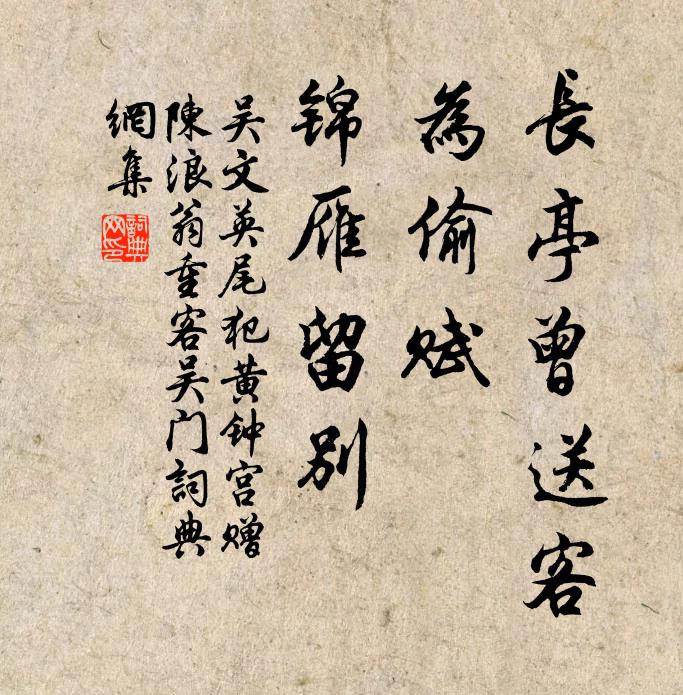 長亭曾送客
為偷賦
锦雁留别
吴文英尾犯黄钟宫赠
陳浪翁重客吴门詞典
網集
詞典
网印